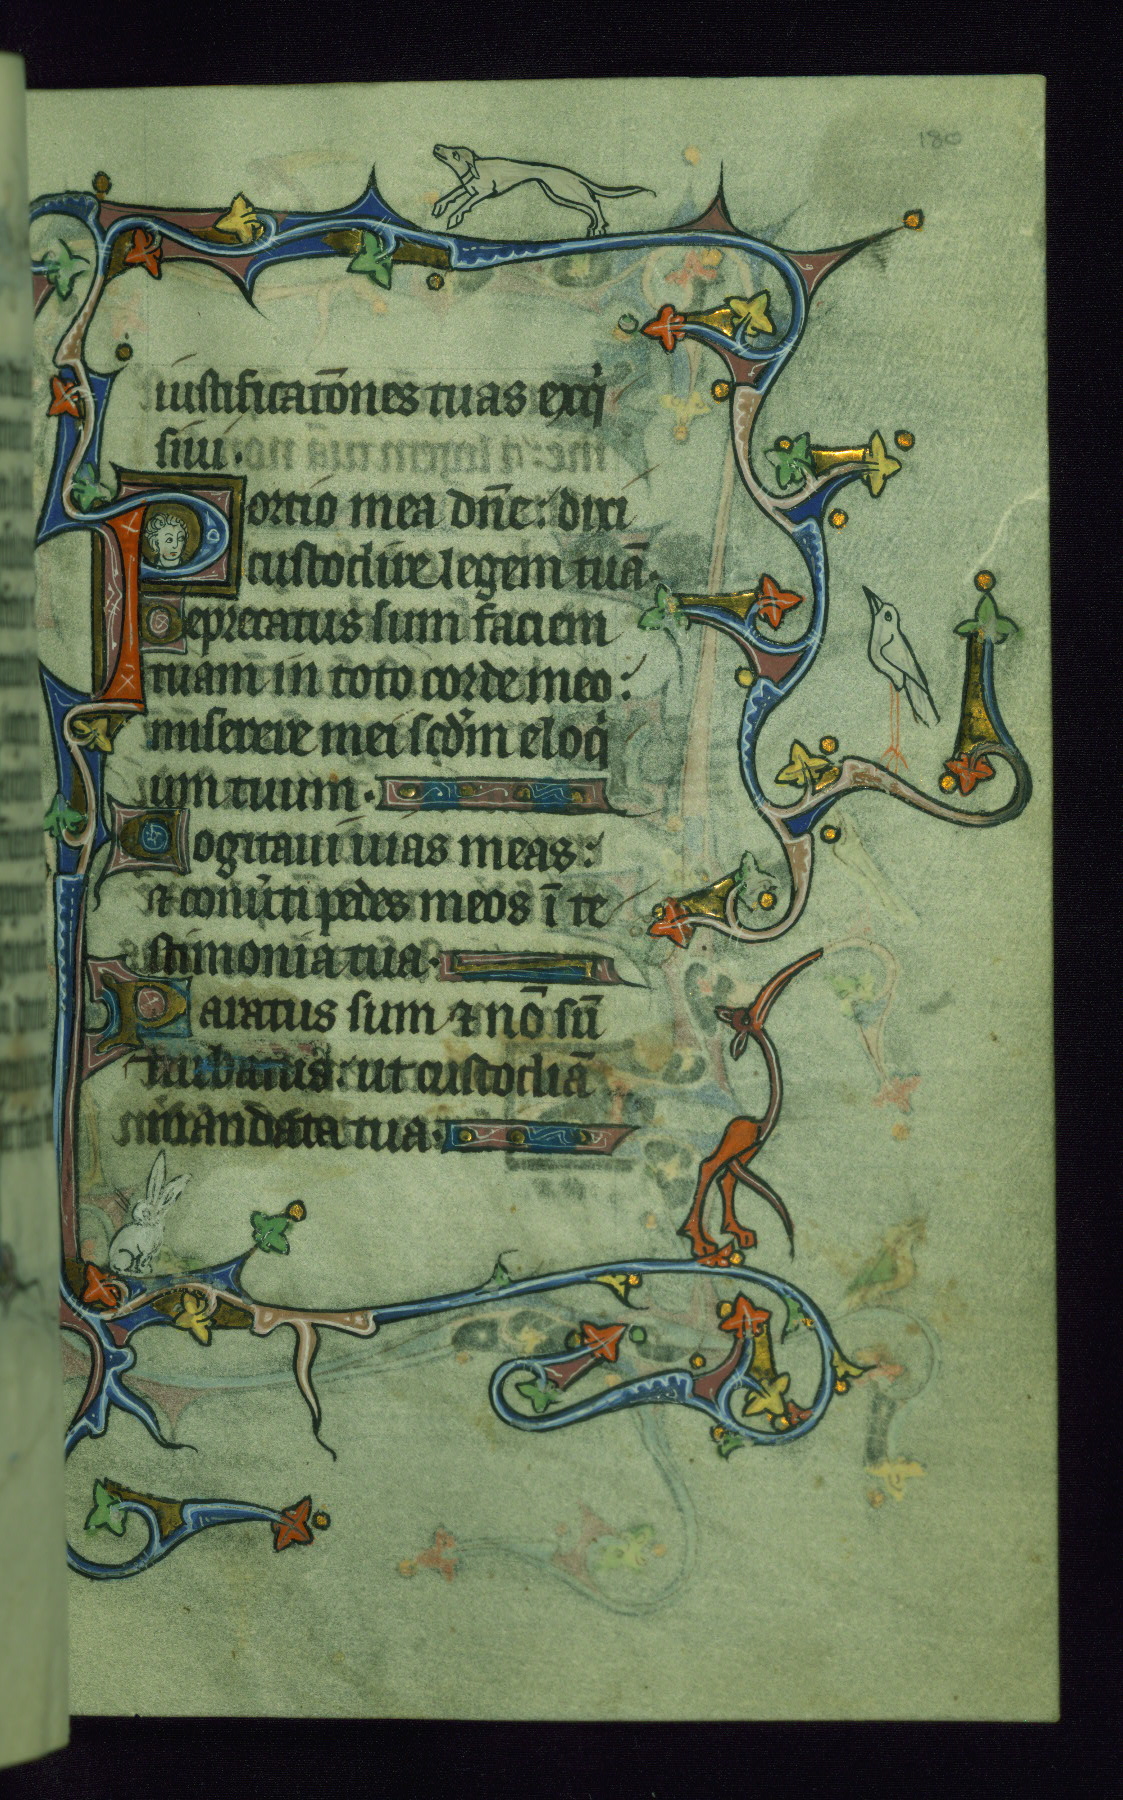 180
iustificatōnes tuas exq̇
siui.
Portio mea dn̄e: dixi
custodire legem tuā.
Deprecatus sum faciem
tuam in toto corde meo:
miserere mei scd̄m eloq̇
um tuum.
Cogitaui uias meas:
et conuti pedes meos ī te
stimonia tua.
Paratus sum ⁊ nō sū
turbatus: ut custodiā
mandata tua.